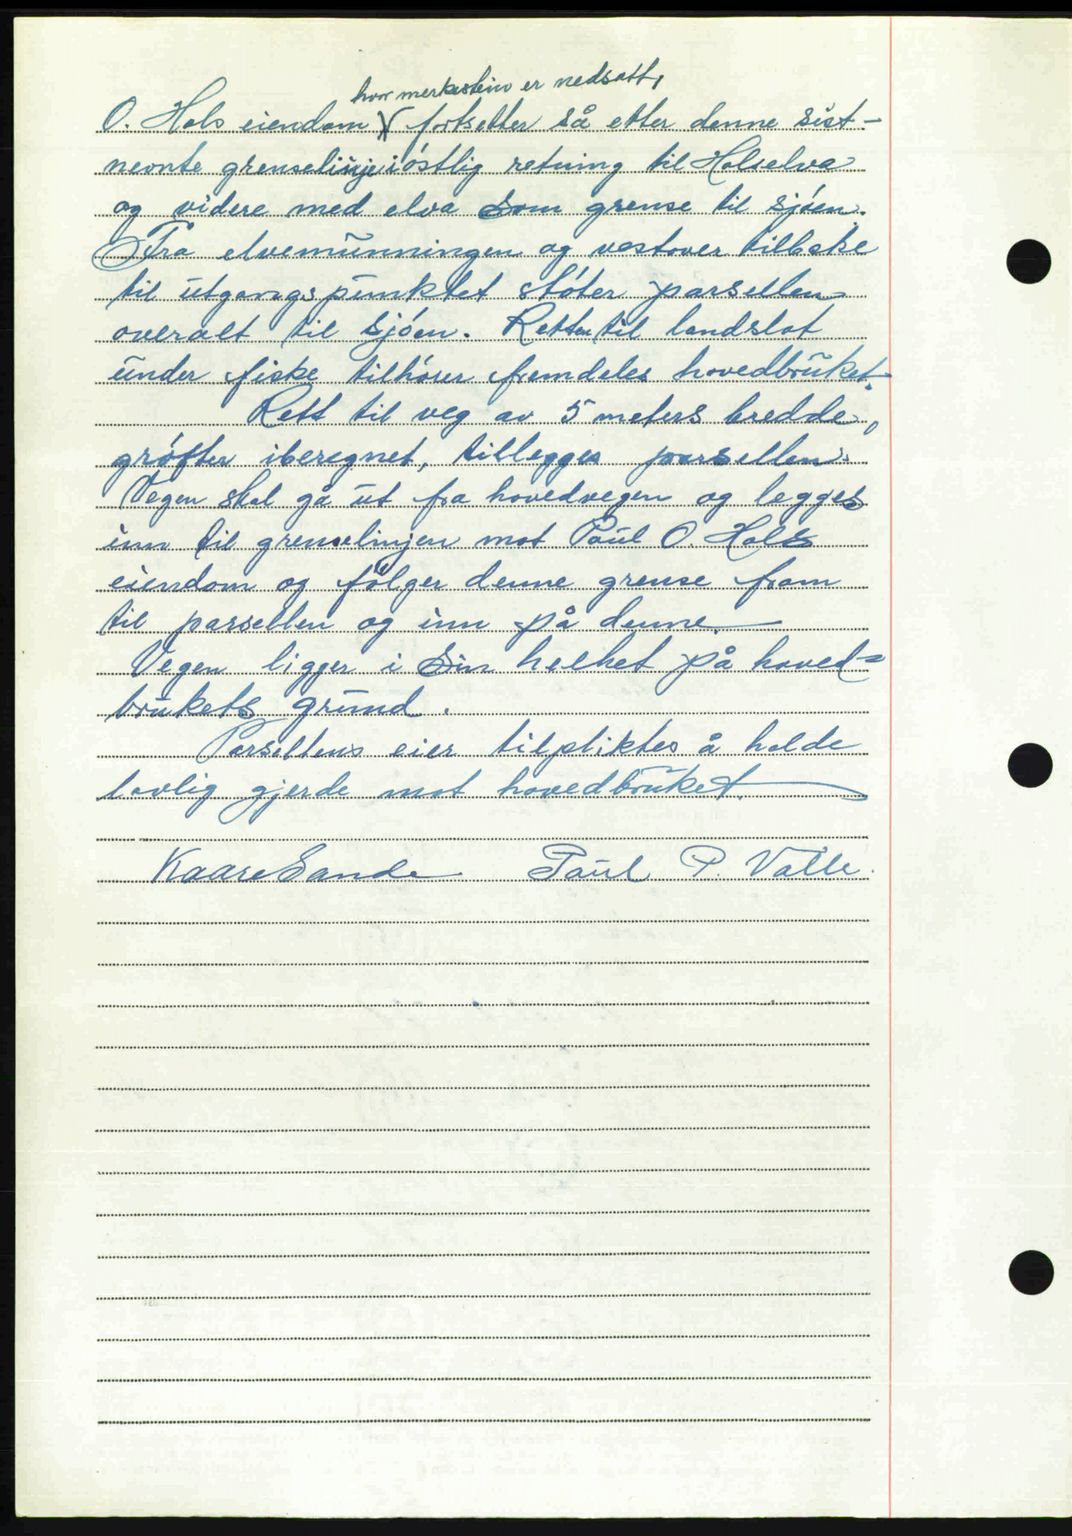 hvor merkestein er nedsatt,
O. Hols eiendom fortsetter så etter denne sist-
nevnte grenselinje i östlig retning til Holselva
og videre med elva som grense til sjöen.
Fra elvemunningen og vestover tilbake
til utgangspunktet støter parsellen
overalt til sjöen. Retten til landslot
under fiske tilhörer fremdeles hovedbruket.
Rett til veg av 5 meters bredde,
gröfter iberegnet, tillegges parsellen.
Vegen skal gå ut fra hovedvegen og legges
inn til grenselinjen mot Paul O. Hols
eiendom og fölger denne grense fram
til parsellen og inn på denne.
Vegen ligger i sin helhet på hoved-
brukets grunn.
Parsellens eier tilpliktes å holde
lovlig gjerde mot hovedbruket.
Kaare Sande Paul P. Valle.